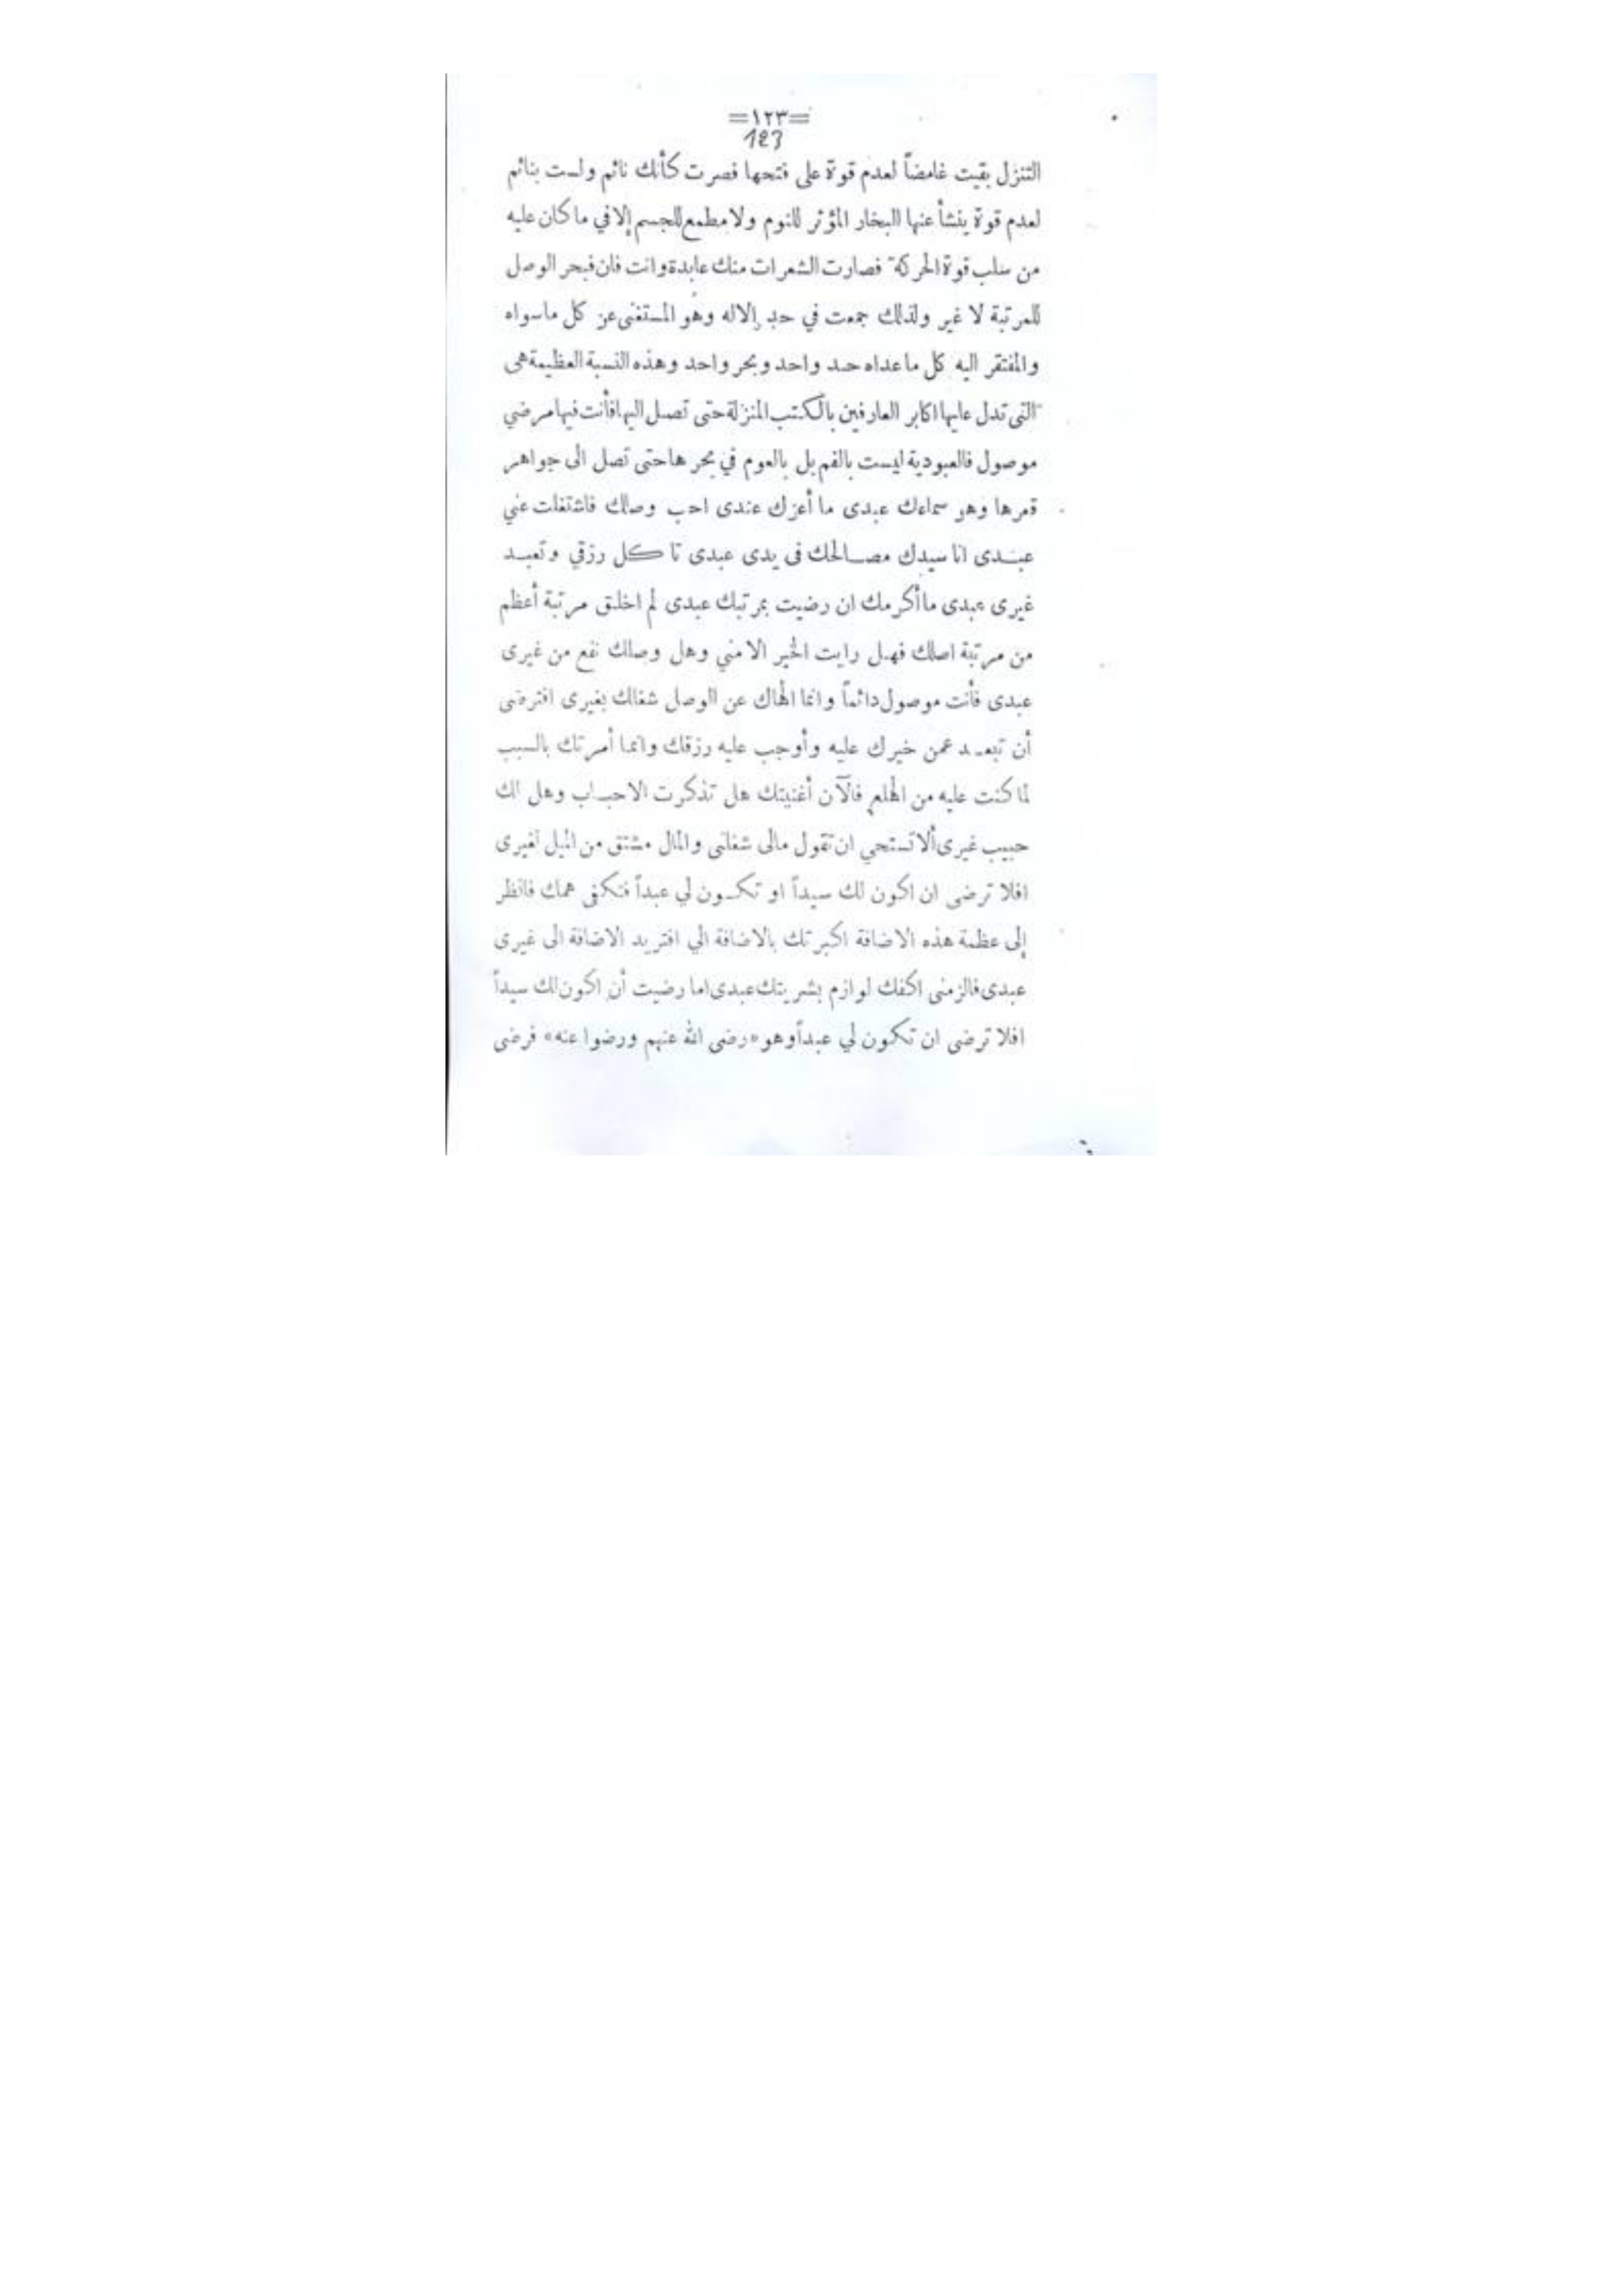 =١٢٣=
123
التنزل بقيت غامضاً لعدم قوة على فتحها فصرت كأنك نائم ولست بنائم
لعدم قوة ينشأ عنها البخار المؤثر للنوم ولا مطمع للجسم إلا في ما كان عليه
من سلب قوة الحركة فصارت الشعرات منك عابدة وانت فان فبحر الوصل
للمرتبة لا غير ولذلك جمعت في حد الاله وهو المستغنى عن كل ماسواه
والمفتقر اليه كل ماعداه حد واحد وبحر واحد وهذه النسبة العظيمة هى
التى تدل عليها اكابر العارفين بالكتب المنزلة حتى تصل اليها فأنت فيها مرضي
موصول فالعبودية ليست بالفم بل بالعوم في بحرها حتى تصل الى جواهر
قعرها وهو سماعك عبدى ما أعزك عندى احب وصالك فاشتغلت عني
عبدى انا سيدك مصالحك فى يدى عبدى تاكل رزقي وتعبد
غيرى عبدى ما أكرمك ان رضيت بمرتبك عبدى لم اخلق مرتبة أعظم
من مرتبة اصلك فهل رايت الخير الا مني وهل وصالك نفع من غيرى
عبدى فأنت موصول دائماً وانما الهاك عن الوصل شغالك بغيرى افترضى
أن تبعد عمن خيرك عليه وأوجب عليه رزقك وانما أمرتك بالسبب
لما كنت عليه من الهلع فالآن أغنيتك هل تذكرت الاحباب وهل لك
حبيب غيرى ألا تستحي ان تقول مالى شغلنى والمال مشتق من الميل لغيرى
افلا ترضى ان اكون لك سيداً او تكون لي عبداً فتكفى همك فانظر
إلى عظمة هذه الاضافة اكبرتك بالاضافة الي افتريد الاضافة الى غيرى
عبدى فالزمنى اكفك لوازم بشريتك عبدى اما رضيت أن اكون لك سيداً
افلا ترضى ان تكون لي عبداً وهو «رضى الله عنهم ورضوا عنه» فرضى